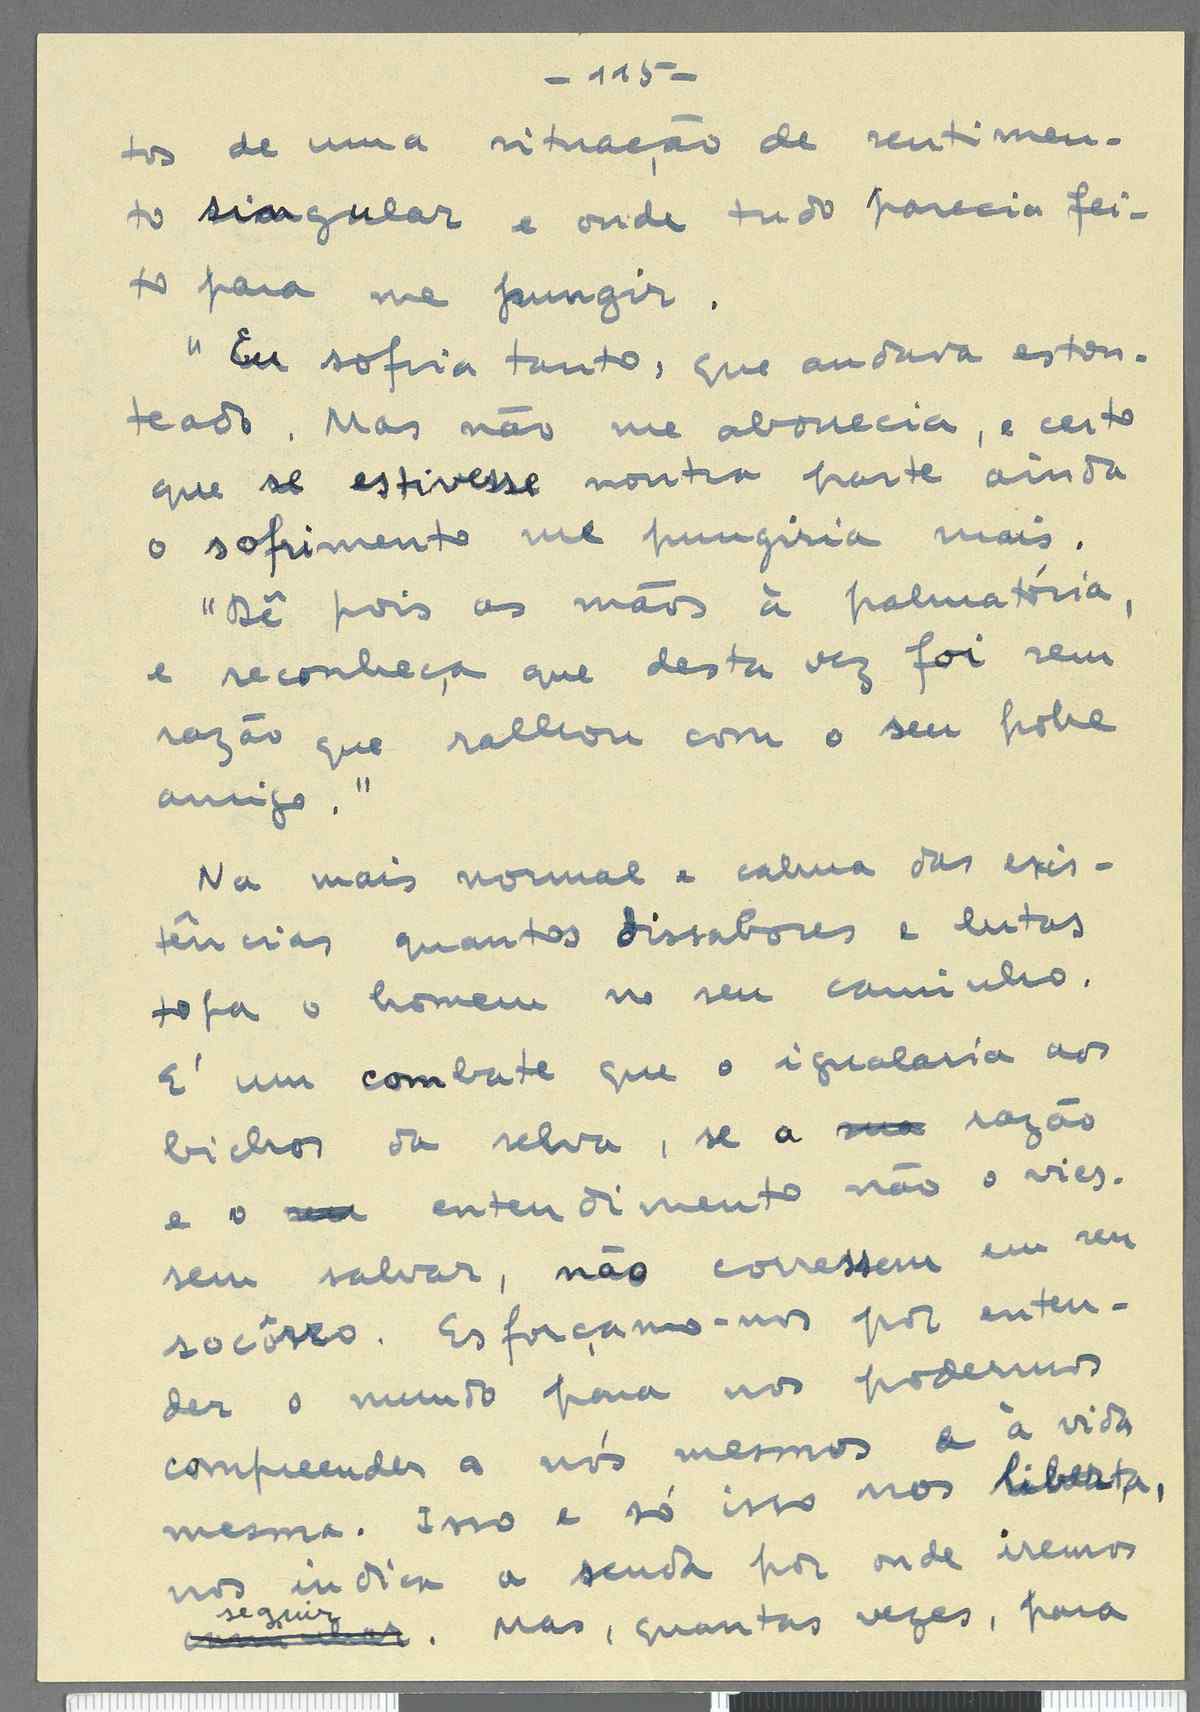 - 115 -
tos de uma situação de sentimen-
to singular e onde tudo parecia fei-
to para me pungir.
"Eu sofria tanto, que andava eston-
teado. Mas não me aborrecia, e certo
que se estivesse noutra parte ainda
o sofrimento me pungiria mais.
"Dê pois as mãos à palmatória,
e reconheça que desta vez foi sem
razão que ralhou com o seu pobre
amigo."
Na mais normal e calma das exis-
tências quantos dissabores e lutas
topa o homem no seu caminho.
E' um combate que o igualaria aos
bichos da selva, se a sua razão
e o seu entendimento não o vies-
sem salvar, não corressem em seu
socôrro. Esforçamo-nos por enten-
der o mundo para nos podermos
compreender a nós mesmos e à vida
mesma. Isso e só isso nos liberta,
nos indica a senda por onde iremos
seguir
caminhar. Mas, quantas vezes, para